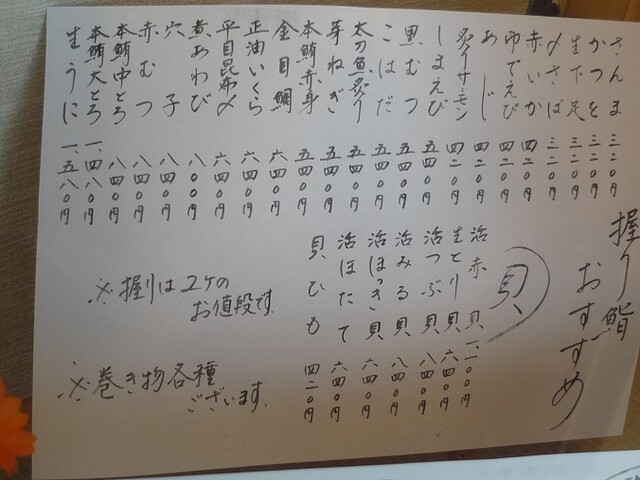 握り鮨
おすすめ
さんま 三二〇円
かつを 三二〇円
生下足 三二〇円
〆さば 三二〇円
赤いか 四二〇円
ゆでえび 四二〇円
あじ 四二〇円
炙りサーモン 四二〇円
しまえび 五四〇円
黒むつ 五四〇円
こはだ 五四〇円
太刀魚炙り 五四〇円
芽ねぎ 五四〇円
本鮪赤身 五四〇円
金目鯛 六四〇円
正油いくら 六四〇円
平目昆布〆 六四〇円
煮あわび 八〇〇円
穴子 八四〇円
赤むつ 八四〇円
本鮪中とろ 八四〇円
本鮪大とろ 一、四八〇円
生うに 一、五八〇円
貝
活赤貝 一、二〇〇円
生とり貝 六四〇円
活つぶ貝 八四〇円
活みる貝 八四〇円
活ほっき貝 六四〇円
活ほたて 六四〇円
貝ひも 四二〇円
※握りは2ケの
お値段です.
※巻き物各種
ございます.